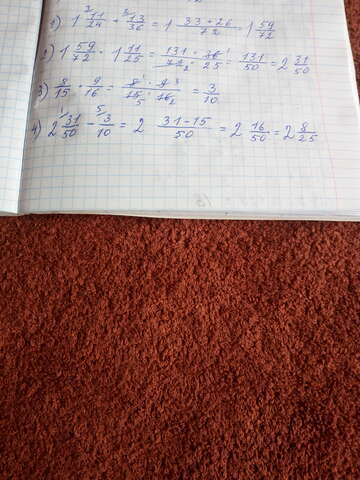 1) 1 11/24 + 13/36 = 1 33+26/72 = 1 59/72
2) 1 59/72 · 1 11/25 = 131/72 · 36/25 = 131/50 = 2 31/50
3) 8/15 · 9/16 = 8·9/15·16 = 3/10
4) 2 31/50 - 3/10 = 2 31-15/50 = 2 16/50 = 2 8/25